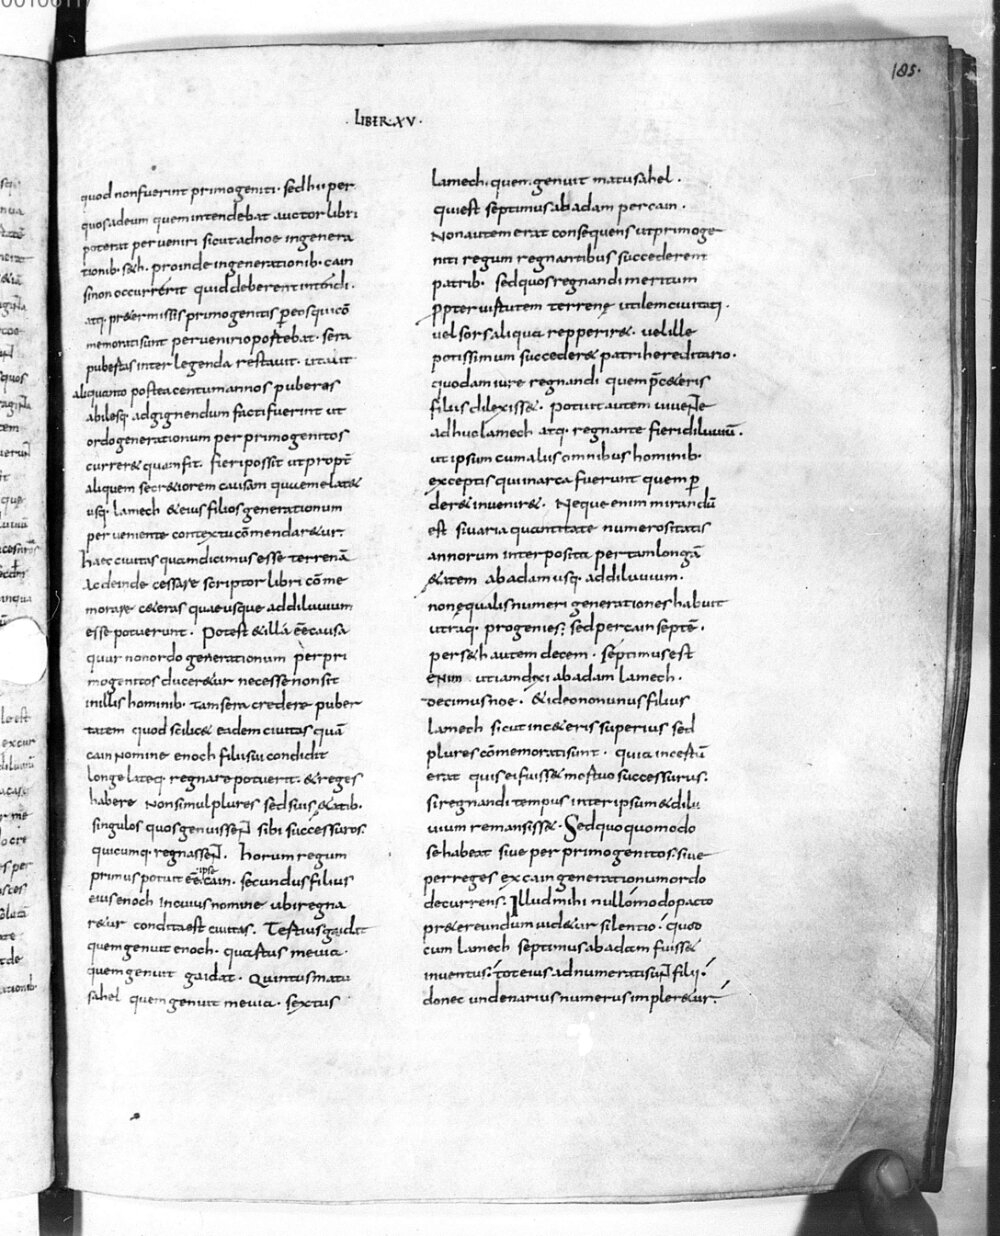 185.
·LIBER·XV·
quod non fuerint primogeniti· sed hii per
quos ad eum quem intendebat auctor libri
poterat per veniri sicut ad noe in genera
tionib· s&h· proinde in generationib· cain
si non occurrerit quid deberent intendi·
atq· pr&ermissis primogenitis p eos qui cō
memorati sunt perveniri oportebat· sera
pubertas inter legenda restavit· ut ait
aliquanto postea centum annos puberes
abilesq· ad gignendum facti fuerint ut
ordo generationum per primogenitos
currer& quam fit· fieri possit ut propt̄
aliquem secr&iorem causam
usq· lamech & eius filios generationum
per veniente contextu cōmendar&ur·
haec civitas quam dicimus esse terrenā
ac deinde cessare scriptor libri cōme
morare c&eras quae usque ad diluvium
esse potuerunt· Potest & illa ēē causa
quur non ordo generationum per pri
mogenitos ducer&ur necesse non sit
in illis hominib· tam sera credere puber
tatem quod scilic& eadem civitas quā
cain nomine enoch filii sui condidit
longe lateq· regnare potuerit· & reges
habere non simul plures sed suis &atib·
singulos quos genuissent sibi successuros·
quicumq· regnassent· horum regum
primus potuit ēē ipse cain· secundus filius
eius enoch in cuius nomine ubi regna
r&ur condita est civitas· Tertius gaidat
quem genuit enoch· quartus mevia·
quem genuit gaidat· Quintus matu
sahel quem genuit mevia· sextus
lamech· quem genuit matusahel·
qui est septimus ab adam per cain·
Non autem erat consequens ut primoge
niti regum regnantibus succederent
patrib· sed quos regnandi meritum
propter virtutem terrenę utilem civitati·
vel sors aliqua repperir&· vel ille
potissimum succeder& patri hereditario·
quodam iure regnandi quem p̄ c&eris
filiis dilexiss&· Potuit autem vivente
adhuc lamech atq· regnante fieri diluvium·
ut ipsum cum aliis omnibus hominib·
exceptis qui in arca fuerunt quem p
der& invenir&· Neque enim mirandū
est si varia quantitate numerositatis
annorum interposita per tam longā
&atem ab adam usq· ad diluvium·
non ęqualis numeri generationes habuit
utraq· progenies; sed per cain septē·
per s&h autem decem· septimus est
enim uti iam dixi ab adam lamech·
decimus noe· & ideo non unus filius
lamech sicut in c&eris superius sed
plures cōmemorati sunt· quia incertū
erat quis ei fuiss& mortuo successurus·
si regnandi tempus inter ipsum & dilu
vium remansiss&· Sed quoquo modo
se habeat sive per primogenitos· sive
per reges ex cain generationum ordo
decurrens; Illud mihi nullo modo pacto
pr&ereundum vid&ur silentio· quod
cum lamech septimus ab adam fuiss&
inventus· tot eius adnumerati sunt filii·
donec undenarius numerus impler&ur·